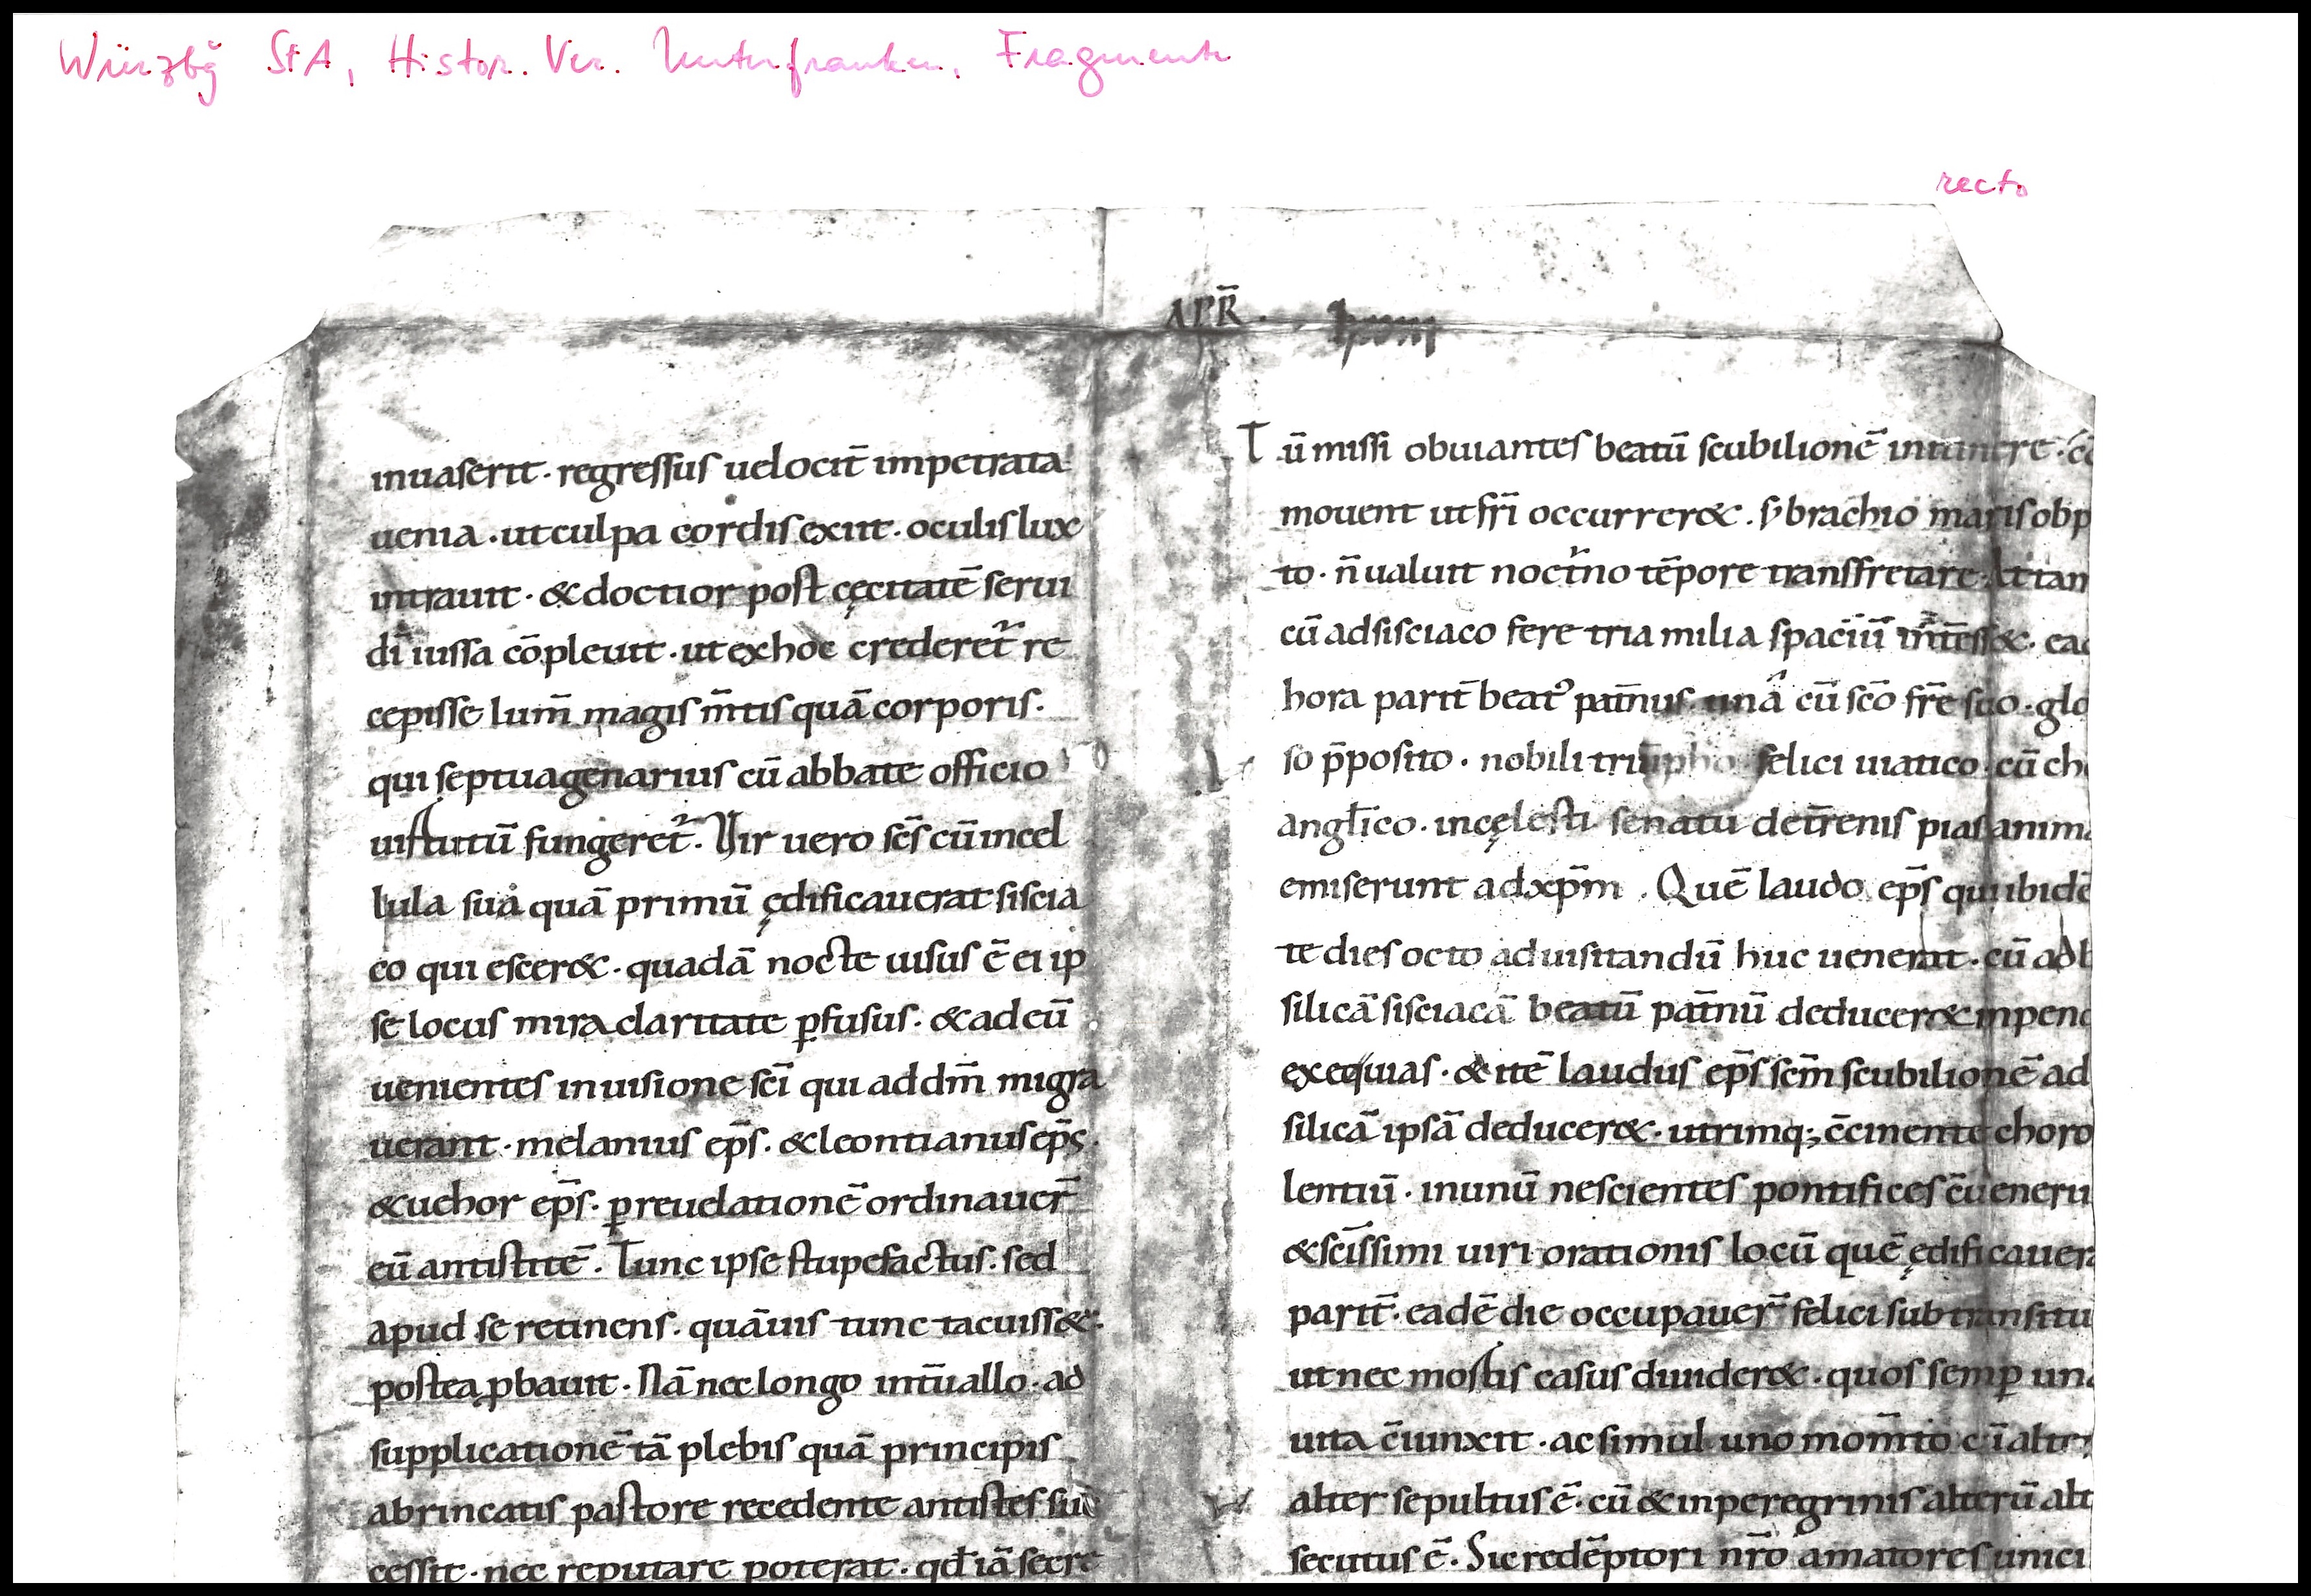 Würzbg StA, Histor. Ver. Unterfranken, Fragmente
recto
APR̄.
inuaserit · regressus uelocit̄ impetrata
uenia · ut culpa cordis exiit · oculis lux
intrauit · & doctior post cęcitatē serui
dī iussa cōpleuit · ut ex hoc crederet᷑ re
cepisse lum̄ magis m̄tis quā corporis.
qui septuagenarius cū abbate officio
uirtutū fungeret᷑. Vir uero scs̄ cū in cel
lula sua quā primū ędificauerat siscia
co quiescer& · quadā nocte uisus ē ei ip
se locus mira claritate ꝑfusus · & ad eū
uenientes in uisione scī qui ad dm̄ migra
uerant · melanius ep̄s · & leontianus ep̄s ·
& uehor ep̄s · ꝑ reuelationē ordinauer̄
eū antistitē . Tunc ipse stupefactus · sed
apud se retinens · quāuis tunc tacuiss& ·
postea ꝓbauit · Nā nec longo int̄uallo · ad
supplicationē tā plebis quā principis
abrincatis pastore recedente antistes suc̄
cessit · nec reputare poterat · qđ iā secre
Tū missi obuiantes beatū scubilionē
mouent ut frī occurrer& . s; brachio maris obp
to · n̄ ualuit noct᷑no tēpore transfretare · At tan
cū ad sisciaco fere tria milia spaciū int̄ess& · ead
hora parit̄ beat᷒ pat̄nus · unā cū scō frē suo · glo
so p̄posito · nobili triūpho felici uiatico cū cho
anglico · in cęlesti senatu de t̄renis pias anima
emiserunt ad xp̄m . Quē laudo ep̄s qui ibidē
te dies octo ad uisitandū huc uenerat · cū ad b
silicā sisciacā beatū pat̄nū deducer& inpend
exequias · & itē laudus ep̄s scm̄ scubilionē ad
silicā ipsā deducer& · utrimq; c̄cinente choro
lentiū · in unū nescientes pontifices c̄ueneru
& scīssimi uiri orationis locū quē ędificauera
parit̄ · eadē die occupauer̄ felici sub transitu
ut nec mortis casus diuider& · quos semꝑ una
uita c̄iunxit · ac simul uno mom̄to
alter sepultus ē · cū & in peregrinis alterū alt
secutus ē . Sic redēptori nr̄o amatores unici